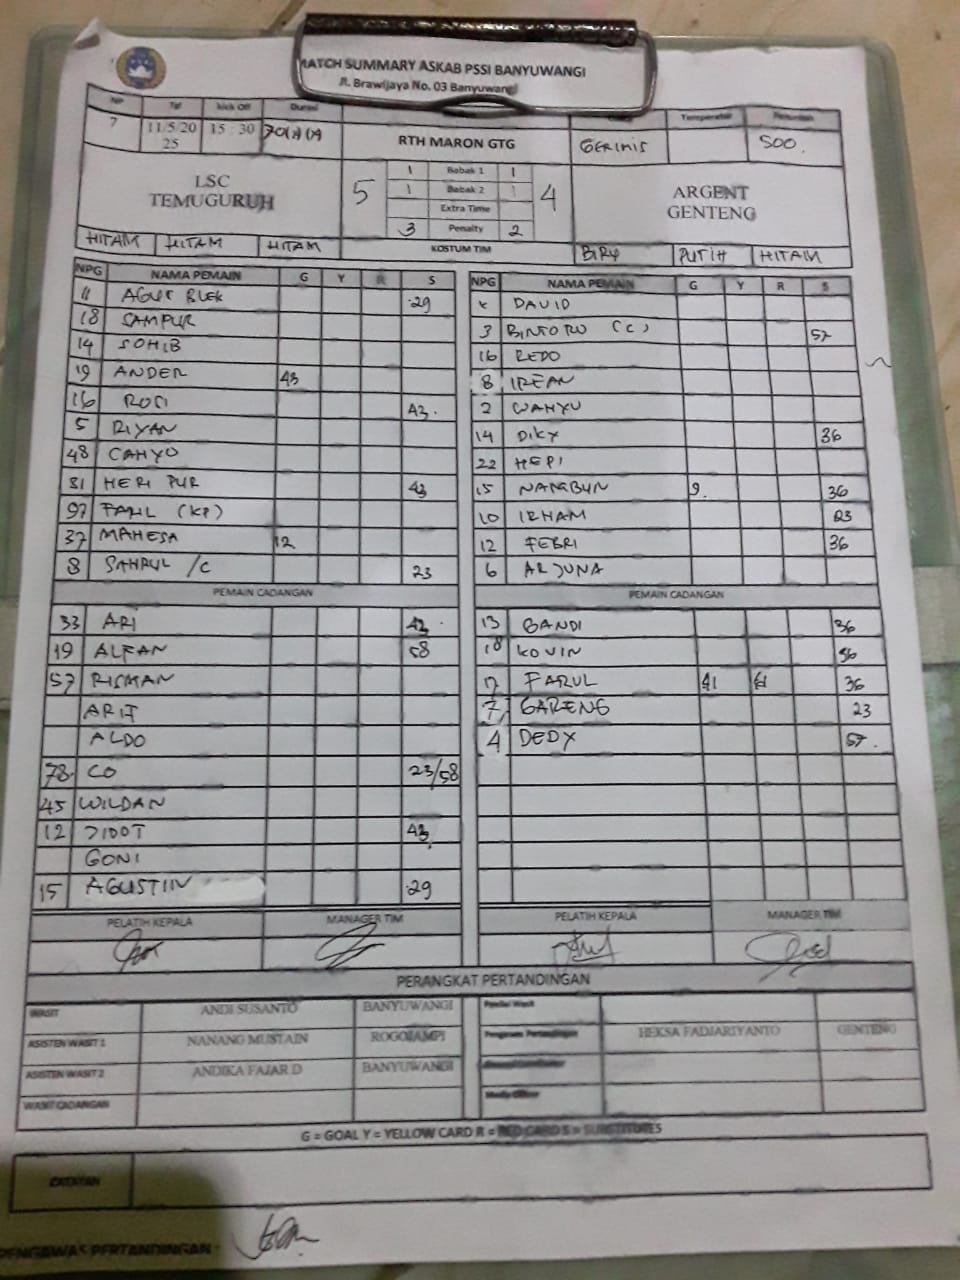 MATCH SUMMARY ASKAB PSSI BANYUWANGI
Jl. Brawijaya No. 03 Banyuwangi
NP Tgl Kick Off Durasi Temperatur Penonton
7 11/5/20 25 15 : 30 RTH MARON GTG GERIMIS 500.
LSC TEMUGURUH 5 4 ARGENT GENTENG
1 Babak 1 1
1 Babak 2 1
Extra Time
3 Penalty 2
HITAM HITAM HITAM KOSTUM TIM BIRU PUTIH HITAM
NPG NAMA PEMAIN G Y R S NPG NAMA PEMAIN G Y R S
11 AGUS BLEK 29 DAVID
18 SAMPUR 3 BINTORO (C) 57
14 SOHIB 16 REDO
19 ANDER 43 8 IRFAN
16 ROSI 43. 2 WAHYU
5 RIYAN 14 DIKY 36
48 CAHYO 22 HEPI
81 HERI PUR 43 15 NANGBUN 9. 36
97 FAHL (KP) 10 IRHAM 23
37 MAHESA 12 12 FEBRI 36
8 SAHRUL /C 23 6 ARJUNA
PEMAIN CADANGAN PEMAIN CADANGAN
33 ARI 43 13 GANDI 36
19 ALFAN 58 18 KOVIN 36
57 RISMAN 17 FARUL 41 61 36
ARIF 7 GARENG 23
ALDO 4 DEDY 57.
78 CO 23/58
45 WILDAN
12 DIDOT 43
GONI
15 AGUSTIIN 29
PELATIH KEPALA MANAGER TIM PELATIH KEPALA MANAGER TIM
PERANGKAT PERTANDINGAN
WASIT ANDI SUSANTO BANYUWANGI Penilai Wasit
ASISTEN WASIT 1 NANANG MUSTAIN ROGOJAMPI Pengawas Pertandingan HEKSA FADJARIYANTO GENTENG
ASISTEN WASIT 2 ANDIKA FAJAR D BANYUWANGI
WASIT CADANGAN Media Officer
G = GOAL Y = YELLOW CARD R = RED CARD S = SUBSTITUTES
CATATAN
PENGAWAS PERTANDINGAN :